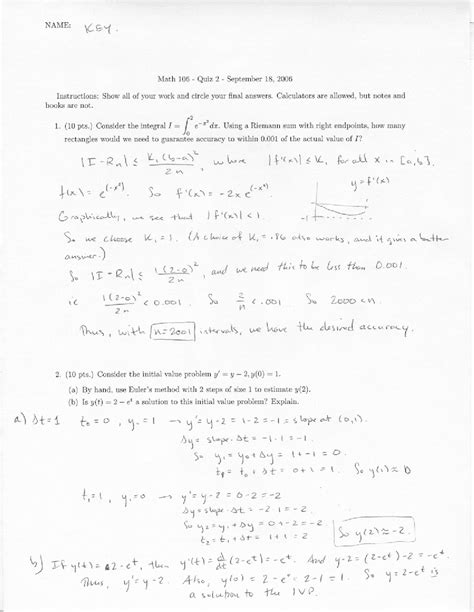 NAME: KEY.
Math 106 - Quiz 2 - September 18, 2006
Instructions: Show all of your work and circle your final answers. Calculators are allowed, but notes and
books are not.
1. (10 pts.) Consider the integral I = ∫₀² e^(-x²) dx. Using a Riemann sum with right endpoints, how many
rectangles would we need to guarantee accuracy to within 0.001 of the actual value of I?
|I - Rn| ≤ K₁(b-a)²/2n, where |f'(x)| ≤ K₁ for all x in [a,b].
f(x) = e^(-x²). So f'(x) = -2xe^(-x²)
y = f'(x)
Graphically, we see that |f'(x)| < 1.
-1
So we choose K₁ = 1. (A choice of K₁ = .86 also works, and it gives a better
answer.)
So |I - Rn| ≤ 1(2-0)²/2n, and we need this to be less than 0.001.
ie 1(2-0)²/2n < 0.001. So 2/n < .001 So 2000 < n.
Thus, with n=2001 intervals, we have the desired accuracy.
2. (10 pts.) Consider the initial value problem y' = y - 2, y(0) = 1.
(a) By hand, use Euler's method with 2 steps of size 1 to estimate y(2).
(b) Is y(t) = 2 - e^t a solution to this initial value problem? Explain.
a) Δt=1 t₀ = 0, y₀ = 1 → y' = y-2 = 1-2 = -1 = slope at (0,1).
Δy = slope·Δt = -1·1 = -1.
So y₁ = y₀+Δy = 1+-1 = 0.
t₁ = t₀ + Δt = 0+1 = 1. So y(1) ≈ 0
t₁=1, y₁=0 → y' = y-2 = 0-2 = -2
Δy = slope·Δt = -2·1 = -2.
So y₂ = y₁+Δy = 0+-2 = -2.
t₂ = t₁+Δt = 1+1 = 2
So y(2) ≈ -2.
b) If y(t) = 2-e^t, then y'(t) = d/dt (2-e^t) = -e^t. And y-2 = (2-e^t)-2 = -e^t.
Thus, y' = y-2. Also, y(0) = 2-e⁰ = 2-1 = 1. So y = 2-e^t is
a solution to the IVP.